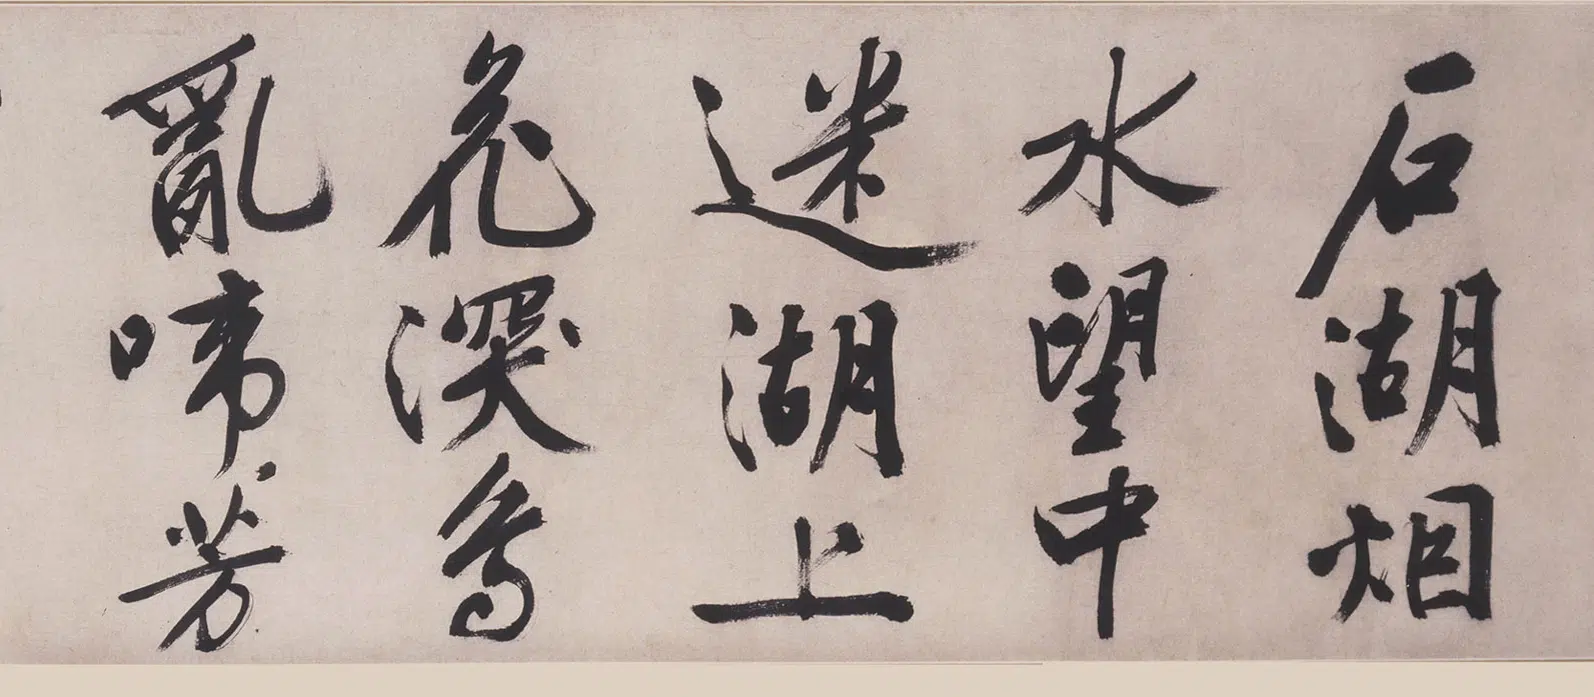 石湖烟
水望中
迷湖上
花深鸟
亂啼芳